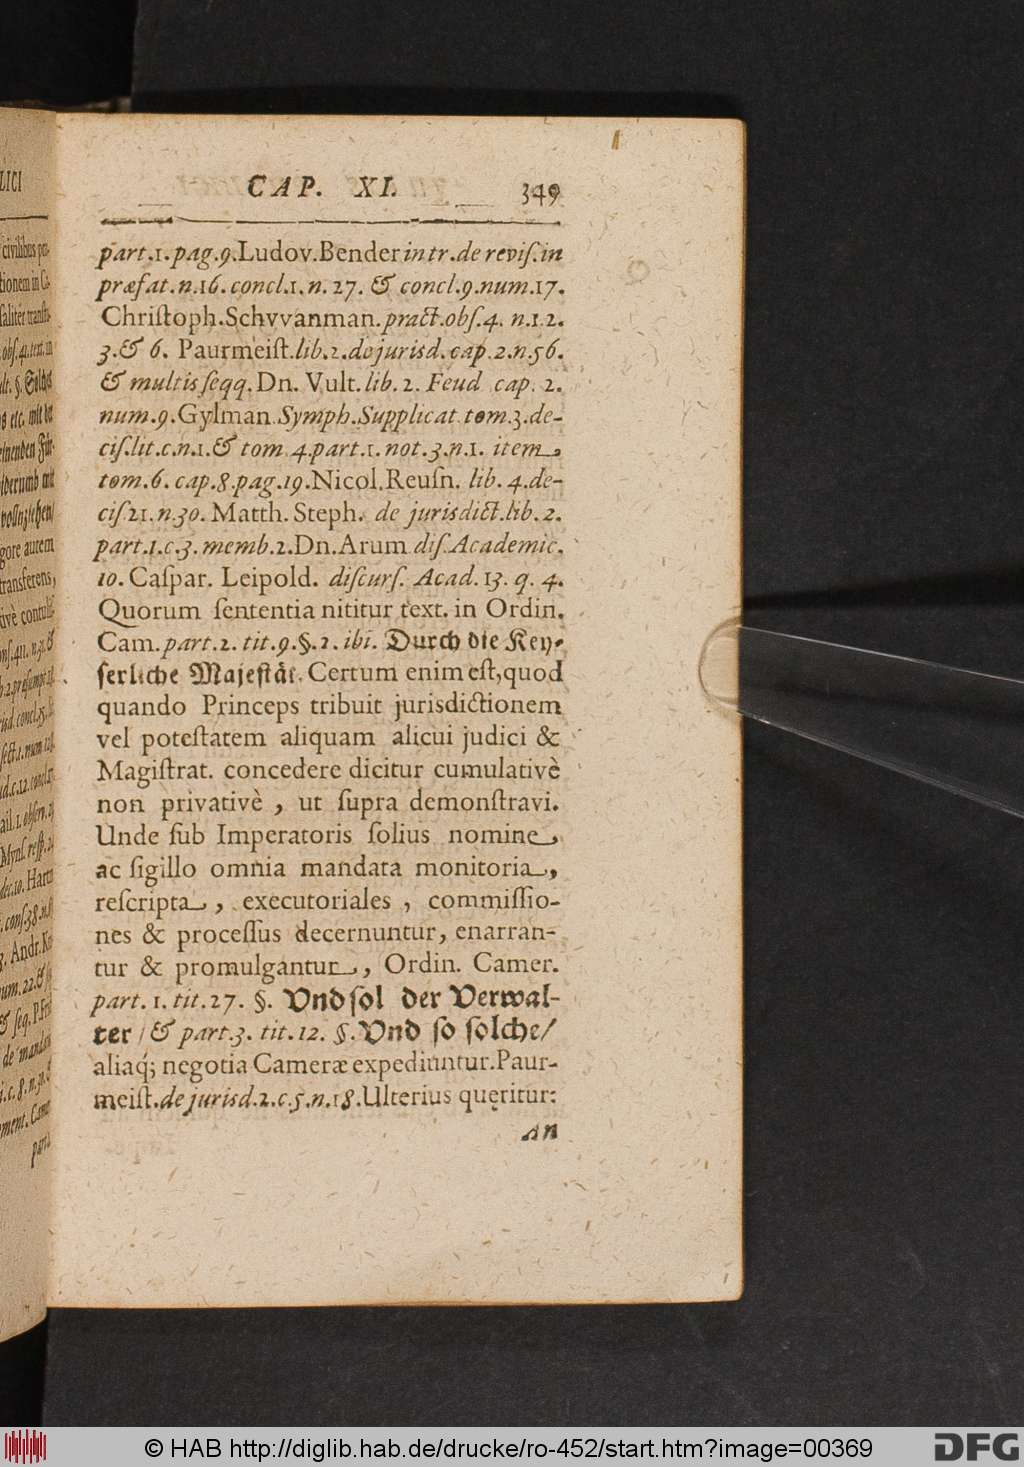 CAP. XI. 349
part.1.pag.9.Ludov.Bender in tr.de reviſ.in
præfat.n.16.concl.1.n.27. & concl.9.num.17.
Chriſtoph.Schvvanman.pract.obſ.4. n.1.2.
3.& 6. Paurmeiſt.lib.2.de jurisd.cap.2.n.56.
& multis ſeqq.Dn. Vult.lib.2. Feud cap. 2.
num.9.Gylman.Symph.Supplicat.tom.3.de-
ciſ.lit.c.n.1.& tom 4.part.1. not.3.n.1. item,
tom.6. cap.8.pag.19.Nicol.Reuſn. lib. 4.de-
ciſ.21.n.30. Matth. Steph. de jurisdict.lib.2.
part.1.c.3. memb.2.Dn.Arum diſ.Academic.
10. Caſpar. Leipold. diſcurſ. Acad. 13. q. 4.
Quorum ſententia nititur text. in Ordin.
Cam.part.2. tit.9.§.2. ibi. Durch die Key-
ſerliche Majeſtät. Certum enim eſt,quod
quando Princeps tribuit jurisdictionem
vel poteſtatem aliquam alicui judici &
Magiſtrat. concedere dicitur cumulativè
non privativè , ut ſupra demonſtravi.
Unde ſub Imperatoris ſolius nomine,
ac ſigillo omnia mandata monitoria,
reſcripta , executoriales , commiſſio-
nes & proceſſus decernuntur, enarran-
tur & promulgantur , Ordin. Camer.
part. 1. tit.27. §. Vnd ſol der Verwal-
ter / & part.3. tit.12. §.Vnd ſo ſolche/
aliaq́; negotia Cameræ expediuntur.Paur-
meiſt.de jurisd.2.c.5.n.18.Ulterius quęritur:
An
© HAB http://diglib.hab.de/drucke/ro-452/start.htm?image=00369
DFG